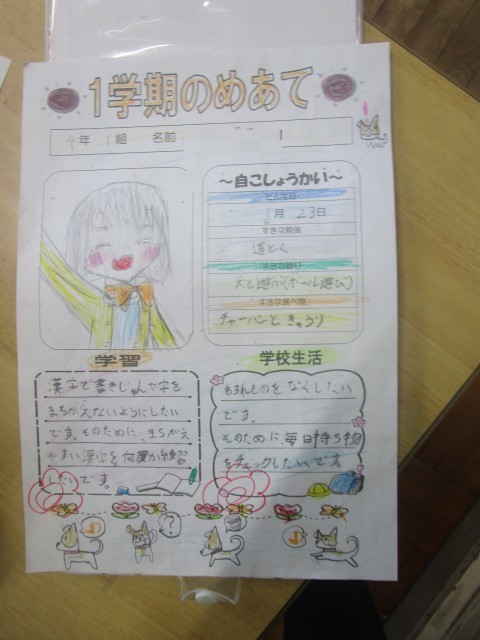 1学期のめあて
4年 1組 名前
～自こしょうかい～
たん生日
1月23日
すきな勉強
道とく
すきな遊び
犬と遊ぶ(ボール遊び)
すきな食べ物
チャーハンときゅうり
学習
漢字で書きじゅんや字を
まちがえないようにしたい
です。そのために、まちがえ
やすい漢字を何度か練習
したいです。
学校生活
わすれものをなくしたい
です。
そのために毎日持ち物
をチェックしたいです。